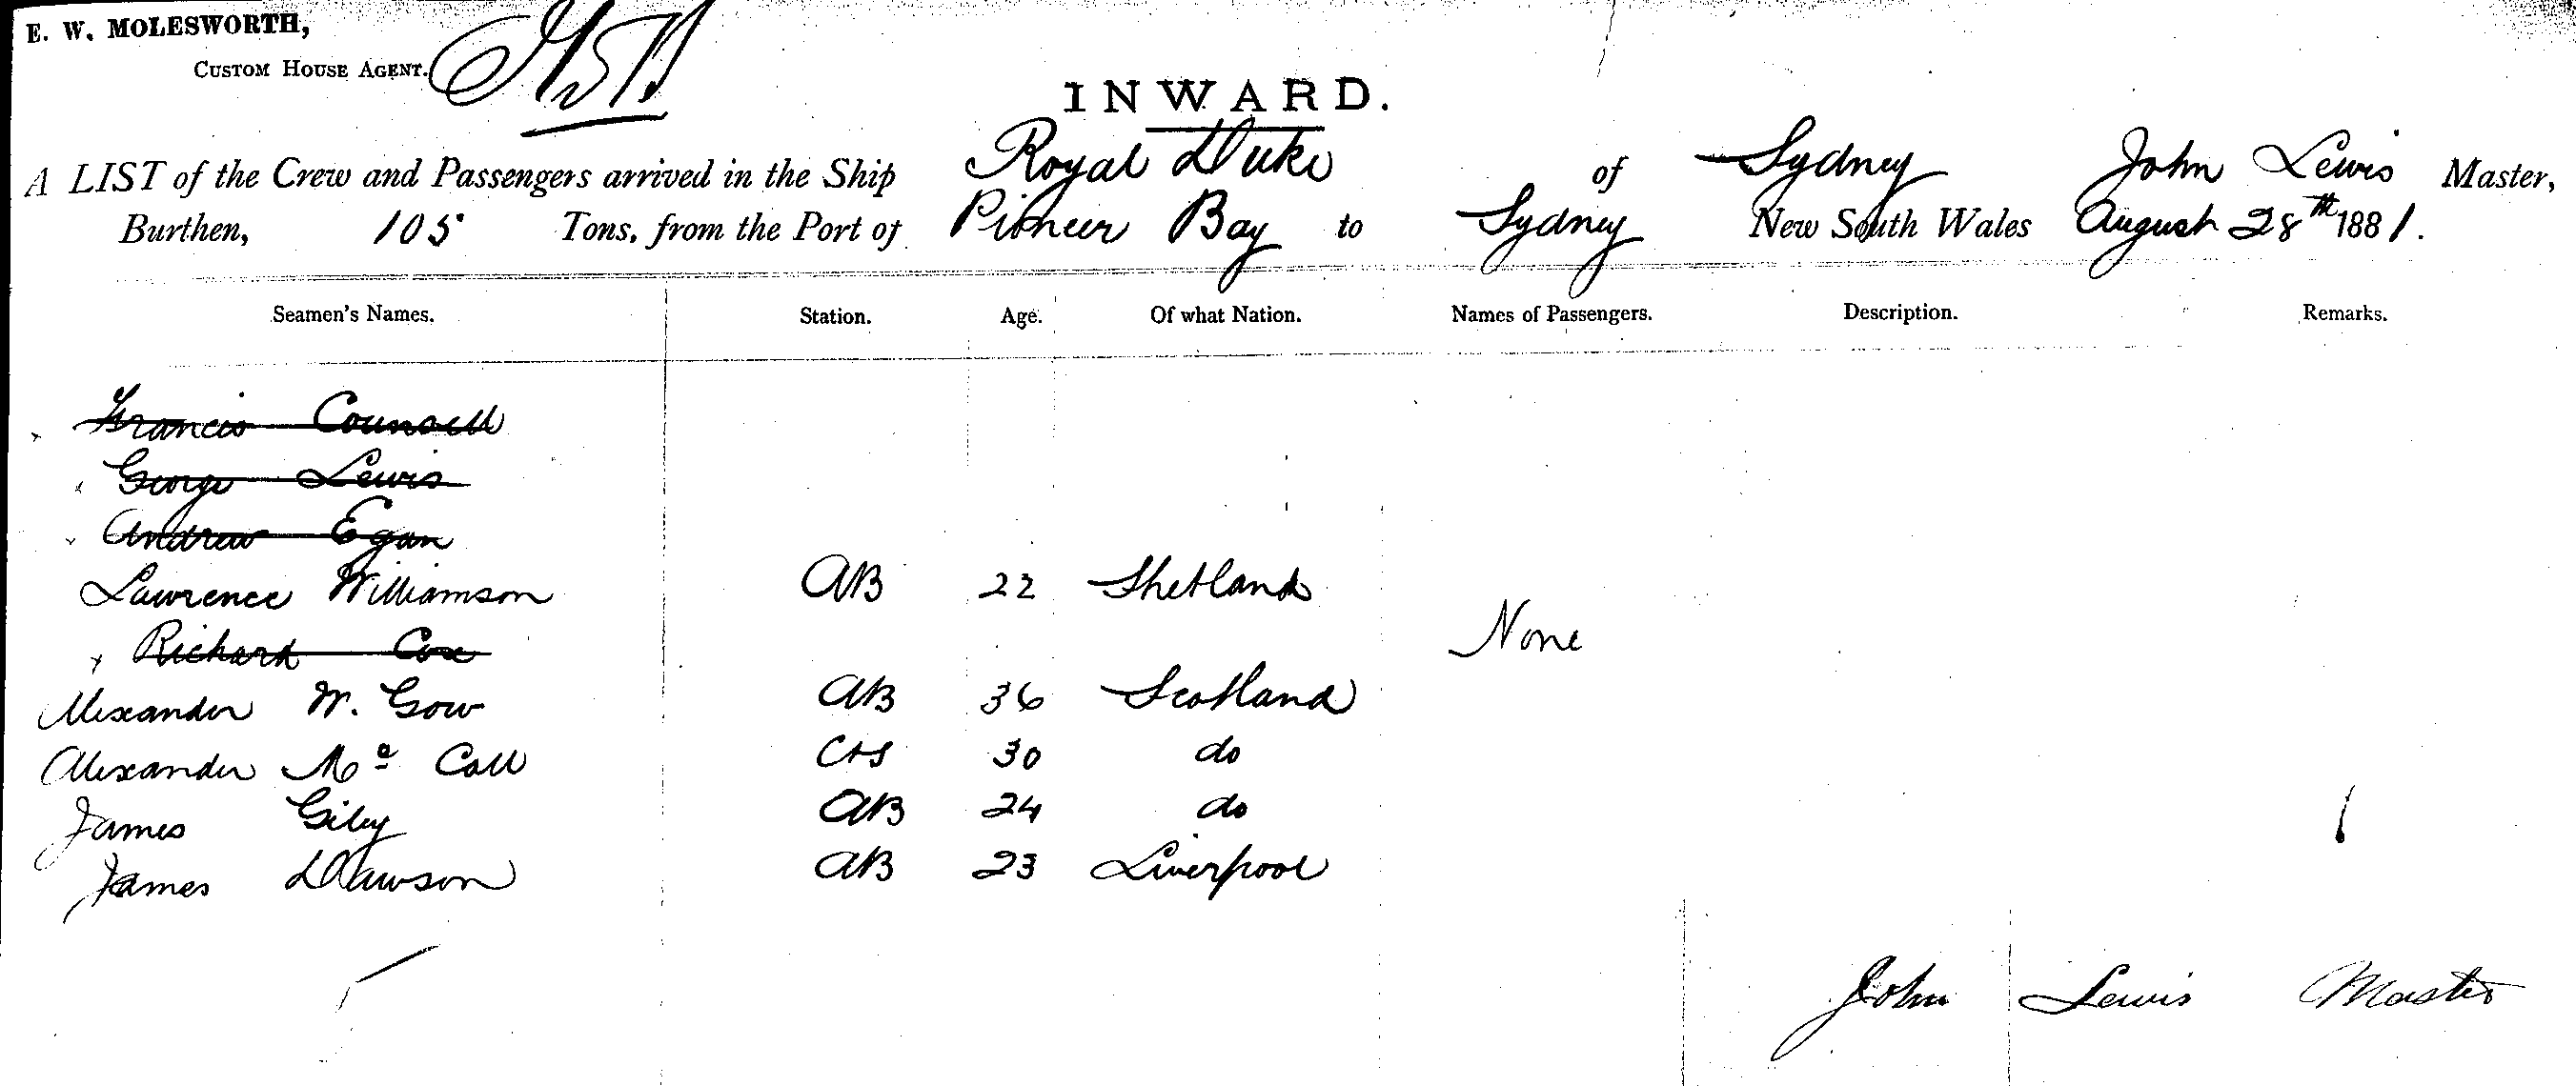 E. W. MOLESWORTH,
CUSTOM HOUSE AGENT.
INWARD.
A LIST of the Crew and Passengers arrived in the Ship Royal Duke of Sydney John Lewis Master,
Burthen, 105 Tons, from the Port of Pioneer Bay to Sydney New South Wales August 28th 1881.
Seamen's Names. Station. Age. Of what Nation. Names of Passengers. Description. Remarks.
Francis Counsell
George Lewis
Andrew Egan
Lawrence Williamson AB 22 Shetland
None
Richard Cox
Alexander W. Gow AB 36 Scotland
Alexander Mc Call C&S 30 do
James Giley AB 24 do
James Dawson AB 23 Liverpool
John Lewis Master